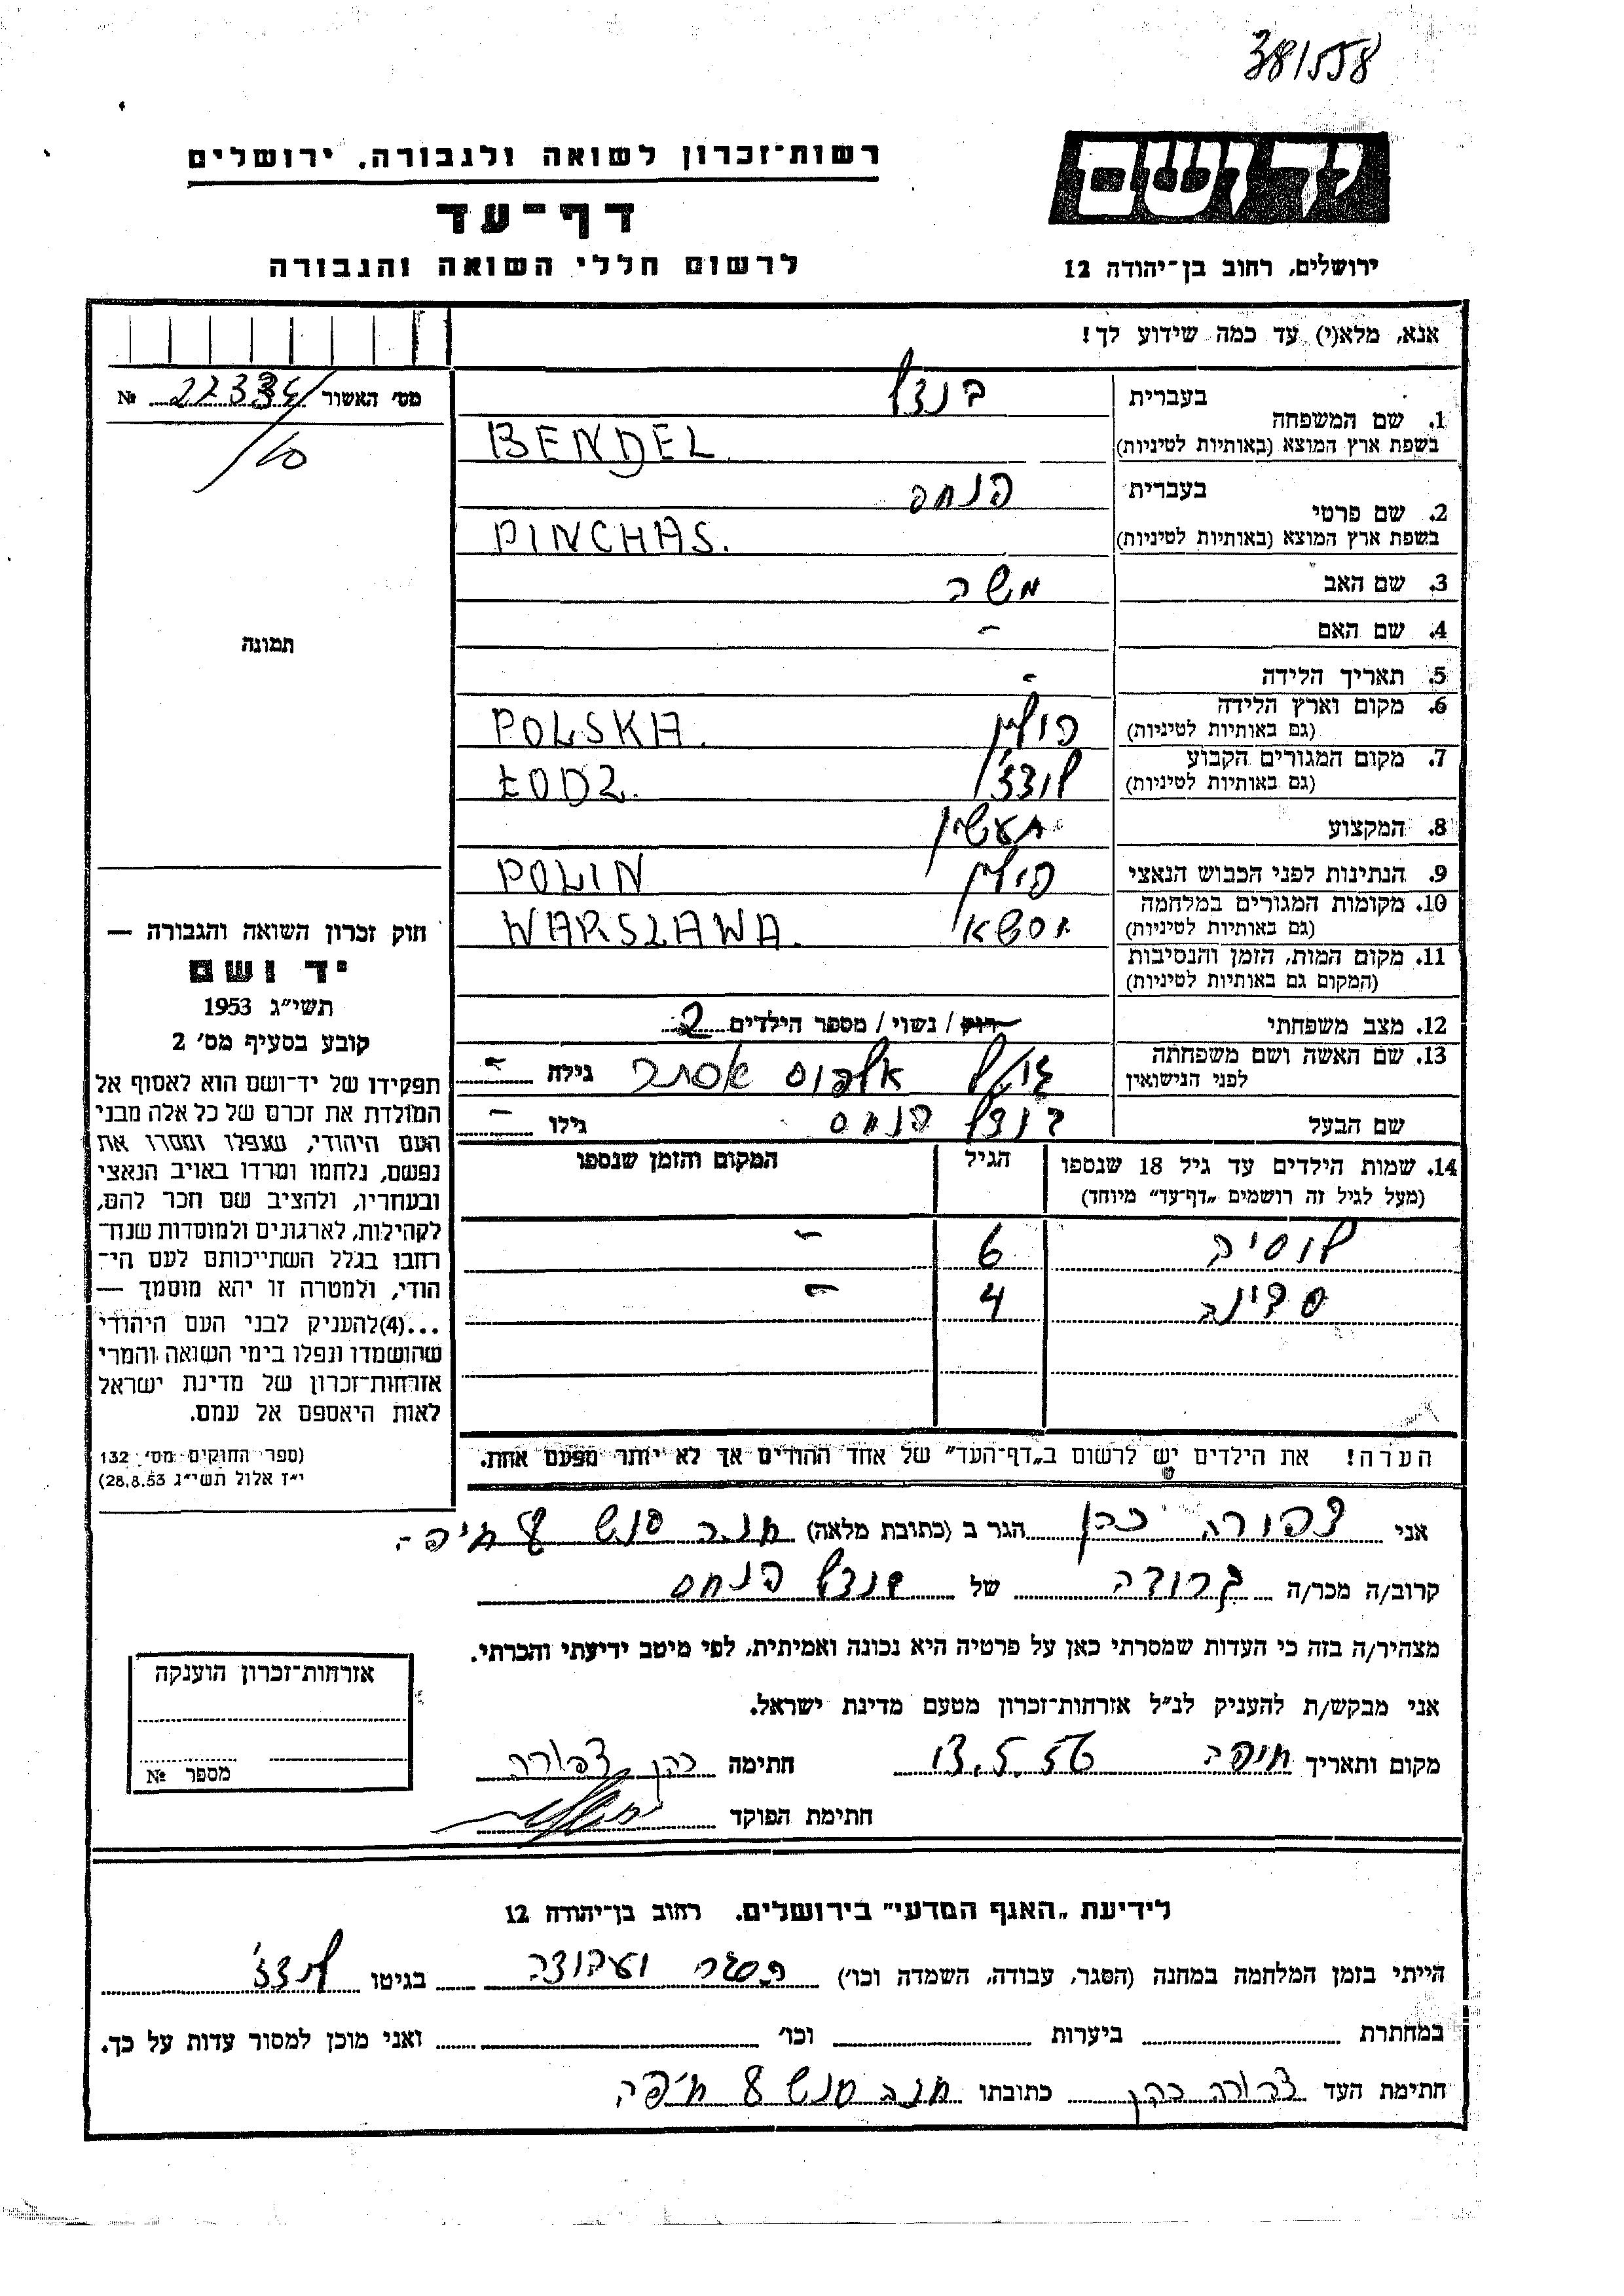 381558
יד ושם
רשות־זכרון לשואה ולגבורה. ירושלים
דף־עד
לרשום חללי השואה והגבורה
ירושלים, רחוב בן־יהודה 12
אנא, מלא(י) עד כמה שידוע לך!
מס' האשור 22334 №
1. שם המשפחה
בעברית בנדל
בשפת ארץ המוצא (באותיות לטיניות) BENDEL
2. שם פרטי
בעברית פנחס
בשפת ארץ המוצא (באותיות לטיניות) PINCHAS.
3. שם האב משה
4. שם האם -
5. תאריך הלידה -
6. מקום וארץ הלידה פולין POLSKA.
(גם באותיות לטיניות)
7. מקום המגורים הקבוע לודז' ŁODZ.
(גם באותיות לטיניות)
8. המקצוע תעשין
9. הנתינות לפני הכבוש הנאצי פולין POLIN
10. מקומות המגורים במלחמה WARSZAWA.
(גם באותיות לטיניות)
11. מקום המות, הזמן והנסיבות
(המקום גם באותיות לטיניות)
12. מצב משפחתי רווק / נשוי / מספר הילדים 2
13. שם האשה ושם משפחתה אסתר גילה -
לפני הנישואין
שם הבעל בנדל פנחס גילו -
14. שמות הילדים עד גיל 18 שנספו הגיל המקום והזמן שנספו
(מעל לגיל זה רושמים „דף־עד" מיוחד)
לוסיה 6 -
4 -
הערה! את הילדים יש לרשום ב„דף־העד" של אחד ההורים אך לא יותר מפעם אחת.
תמונה
חוק זכרון השואה והגבורה —
יד ושם
תשי״ג 1953
קובע בסעיף מס' 2
תפקידו של יד־ושם הוא לאסוף אל
המולדת את זכרם של כל אלה מבני
העם היהודי, שנפלו ומסרו את
נפשם, נלחמו ומרדו באויב הנאצי
ובעוזריו, ולהציב שם וזכר להם,
לקהילות, לארגונים ולמוסדות שנח־
רבו בגלל השתייכותם לעם הי־
הודי, ולמטרה זו יהא מוסמך —
...(4) להעניק לבני העם היהודי
שהושמדו ונפלו בימי השואה והמרי
אזרחות־זכרון של מדינת ישראל
לאות היאספם אל עמם.
(ספר החוקים מס' 132
י״ז אלול תשי״ג 28.8.53)
אני צפורה כהן הגר ב (כתובת מלאה) חנה סנש 8 חיפה.
קרוב/ה מכר/ה של בנדל פנחס
מצהיר/ה בזה כי העדות שמסרתי כאן על פרטיה היא נכונה ואמיתית, לפי מיטב ידיעתי והכרתי.
אני מבקש/ת להעניק לנ״ל אזרחות־זכרון מטעם מדינת ישראל.
מקום ותאריך חיפה 13.5.56 חתימה כהן צפורה
חתימת הפוקד
אזרחות־זכרון הוענקה
מספר №
לידיעת „האגף המדעי" בירושלים. רחוב בן־יהודה 12
הייתי בזמן המלחמה במחנה (הסגר, עבודה, השמדה וכו') הסגר ועבודה בגיטו לודז'
במחתרת ביערות וכו' ואני מוכן למסור עדות על כך.
חתימת העד צפורה כהן כתובתו חנה סנש 8 חיפה